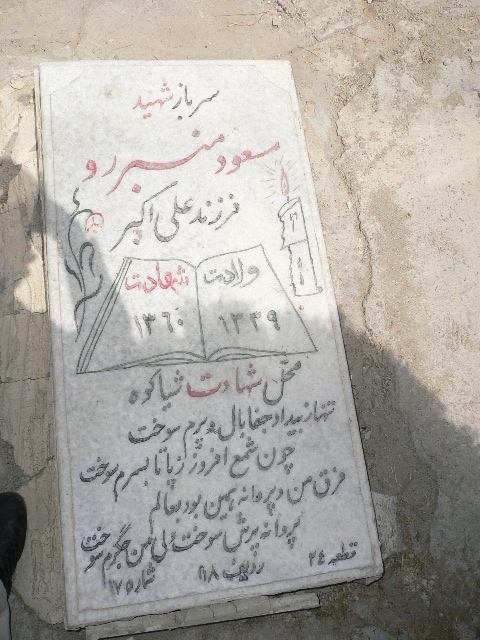 سرباز شهید
مسعود منبررو
فرزند علی اکبر
ولادت شهادت
۱۳۳۹ ۱۳۶۰
محل شهادت شیاکوه
تنها ز بیداد جفا بال و پرم سوخت
چون شمع افروز ز پا تا بسرم سوخت
فرق من و پروانه همین بود بعالم
پروانه پرش سوخت ولی من جگرم سوخت
قطعه ۲۴ ردیف ۹۸ شماره ۱۷